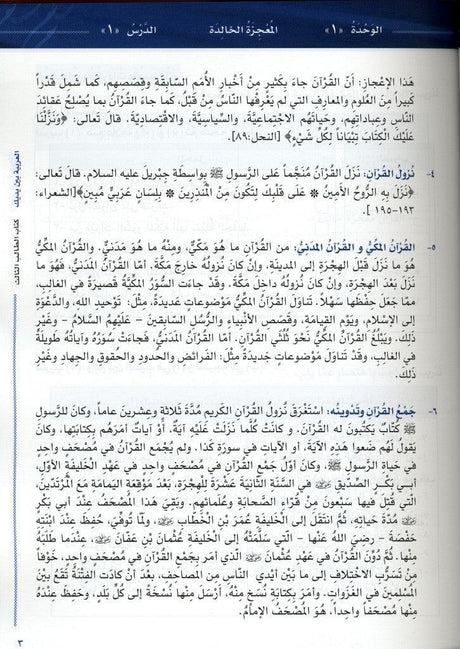 الوَحْدَةُ «١» المُعْجِزَةُ الخَالِدَة الدَّرْسُ «١»
هَذا الإِعْجازِ: أَنَّ القُرْآنَ جاءَ بِكَثيرٍ مِنْ أَخْبارِ الأُمَمِ السّابِقَةِ وقِصَصِهِم، كَما شَمِلَ قَدْراً
كَبيراً مِنَ العُلومِ والمَعارِفِ التي لَم يَعْرِفْها النّاسُ مِنْ قَبْلُ، كَما جاءَ القُرْآنُ بِما يُصْلِحُ عَقائِدَ
النّاسِ وعِباداتِهِم، وحَياتَهُم الاجْتِماعِيَّةَ، والسِّياسِيَّةَ، والاقْتِصادِيَّةَ. قالَ تَعالى: ﴿وَنَزَّلْنَا
عَلَيْكَ الْكِتَابَ تِبْيَاناً لِكُلِّ شَيْءٍ﴾ [النحل:٨٩].
٤- نُزولُ القُرآنِ: نَزَلَ القُرْآنُ مُنَجَّماً عَلى الرَّسولِ ﷺ بِواسِطَةِ جِبْريلَ عليه السلام. قالَ تَعالى:
﴿نَزَلَ بِهِ الرُّوحُ الأَمِينُ ۞ عَلَى قَلْبِكَ لِتَكُونَ مِنَ الْمُنْذِرِينَ ۞ بِلِسَانٍ عَرَبِيٍّ مُبِينٍ﴾[الشعراء:
١٩٣-١٩٥ ].
٥- القُرْآنُ المَكِّيُّ و القُرْآنُ المَدَنِيُّ: من القُرْآنِ ما هُوَ مَكِّيٌّ، ومِنْهُ ما هُوَ مَدَنِيٌّ. والقُرْآنُ المَكِّيُّ
هُوَ ما نَزَلَ قَبْلَ الهِجْرَةِ إِلى المدينَةِ، وإِنْ كانَ نُزولُهُ خارِجَ مَكَّةَ. أمّا القُرْآنُ المَدَنِيُّ، فَهُوَ ما
نَزَلَ بَعْدَ الهِجْرَةِ، وإِنْ كانَ نُزولُهُ داخِلَ مَكَّةَ. وقَدْ جاءَت السُّوَرُ المَكِّيَّةُ قَصيرَةً في الغالِبِ،
ممّا جَعَلَ حِفْظَها سَهْلاً. تَناوَلَ القُرْآنُ المَكِّيُّ مَوْضوعاتٍ عَديدَةً، مِثْلَ: تَوْحيدِ اللهِ، والدَّعْوَةِ
إِلى الإِسْلامِ، ويَوْمِ القِيامَةِ، وقَصَصِ الأَنْبِياءِ والرُّسُلِ السّابِقينَ – عَلَيْهِمُ السَّلامُ – وغَيْرِ
ذَلِكَ. ويَبْلُغُ القُرْآنُ المَكِّيُّ نَحْوَ ثُلُثَي القُرْآنِ. أمّا القُرْآنُ المَدَنِيُّ، فَجاءَتْ سُوَرُهُ وآياتُهُ طَويلَةً
في الغالِبِ، وقَدْ تَناوَلَ مَوْضوعاتٍ جَديدَةً مِثْلَ: الفَرائضِ والحُدودِ والحُقوقِ والجِهادِ وغَيْرِ
ذَلِكَ.
٦- جَمْعُ القُرآنِ وتَدْوينُه: اسْتَغْرَقَ نُزولُ القُرْآنِ الكَريمِ مُدَّةَ ثَلاثَةٍ وعِشْرينَ عاماً، وكانَ للرَّسولِ
ﷺ كُتّابٌ يَكْتُبونَ لَه القُرآنَ. و كانَتْ كُلَّما نَزَلَتْ عَلَيْهِ آيَةٌ، أَوْ آياتٌ أَمَرَهُم بِكِتابَتِها، وكانَ
يَقولُ لَهُم ضَعوا هَذِهِ الآيَةَ، أو الآياتِ في سورَةِ كَذا. ولم يُجْمَعِ القُرْآنُ في مُصْحَفٍ واحِدٍ
في حَياةِ الرَّسولِ ﷺ، وكانَ أوَّلُ جَمْعٍ لِلْقُرآنِ في مُصْحَفٍ واحِدٍ في عَهْدِ الخَليفَةِ الأوَّلِ،
أبي بَكْرٍ الصِّدّيقِ رضي الله عنه في السَّنَةِ الثّانِيَةَ عَشْرَةَ لِلْهِجْرَةِ، بَعْدَ مَوْقِعَةِ اليَمامَةِ مَعَ المُرْتَدّينَ،
الّتي قُتِلَ فيها سَبْعونَ مِنْ قُرّاءِ الصَّحابَةِ وعُلَمائِهِم. وبَقِيَ هَذا المُصْحَفُ عِنْدَ أبي بَكْرٍ
رضي الله عنه مُدَّةَ حَياتِهِ، ثُمَّ انْتَقَلَ إلى الخَليفَةِ عُمَرَ بْنِ الخَطّابِ رضي الله عنه، ولَمّا تُوُفِّيَ، حُفِظَ عِنْدَ ابْنَتِهِ
حَفْصَةَ – رَضِيَ اللهُ عَنْها – الَّتي سَلَّمَتْهُ إِلى الخَليفَةِ عُثْمانَ بْنِ عَفّانَ رضي الله عنه، عِنْدَما طَلَبَهُ
مِنْها. ثُمَّ دُوِّنَ القُرْآنُ في عَهْدِ عُثْمانَ رضي الله عنه الّذي أمَرَ بِجَمْعِ القُرْآنِ في مُصْحَفٍ واحِدٍ، خَوْفاً
مِنْ تَسَرُّبِ الاخْتِلافِ إلى ما بَيْنَ أيْدي النّاسِ مِن المصاحِفِ، بعدَ أنْ كادَت الفِتْنَةُ تَقَعُ بَيْنَ
المُسْلِمينَ في الغَزَواتِ. وأمَرَ بِكِتابَةِ نُسَخٍ مِنْهُ، أرْسَلَ مِنْها نُسْخَةً إلى كُلِّ بَلَدٍ، وحَفِظَ عِنْدَهُ
مِنْها مُصْحَفاً واحِداً، هُوَ المُصْحَفُ الإمامُ.
العربية بين يديك كتاب الطالب الثالث
٣